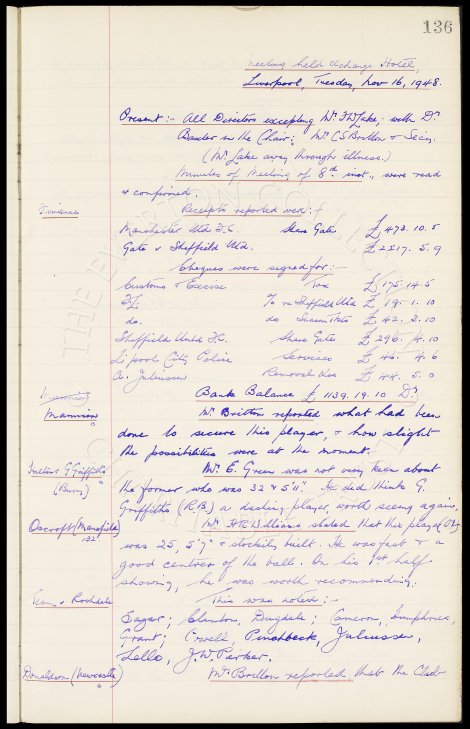 136
Meeting held Exchange Hotel,
Liverpool, Tuesday, Nov 16, 1948.
Present:- All Directors excepting Mr. F W Lake; with Dr
Baxter in the Chair; Mr. C S Britton & Secy.
(Mr. Lake away through illness.)
Minutes of Meeting of 8th inst., were read
& confirmed.
Finance
Receipts reported were:-
Manchester Utd F.C. Share Gate £473.10.5
Gate v Sheffield Utd. £2217.5.9
Cheques were signed for:-
Customs & Excise Tax £175.14.5
do. do Season Tkts £42.2.10
Sheffield United F.C. Share Gate £296.4.10
L'pool City Police Services £46.4.6
A. Juliussen Removal £44.5.0
Bank Balance £1139.19.10 Dr.
Mannion
Mr. Britton reported what had been
done to secure this player, & how slight
the possibilities were at the moment.
G. Griffiths
(Bury)
Mr. E. Green was not very keen about
the former who was 32 & 5'11". He did think G.
Griffiths (R.B.) a dashing player, worth seeing again,
Oscroft (Mansfield)
Mr. H R Williams stated that this player O/L
was 25, 5'9" & stockily built. He was fast & a
good centrer of the ball. On his 1st half
showing, he was worth recommending.
Team v Rochdale
This was noted:-
Sagar; Clinton, Dugdale; Cameron, Humphries,
Grant; Powell, Pinchbeck, Juliussen,
Lello, J.W. Parker.
Donaldson (Newcastle)
Mr. Britton reported that the Club
THE EVERTON COLLECTION